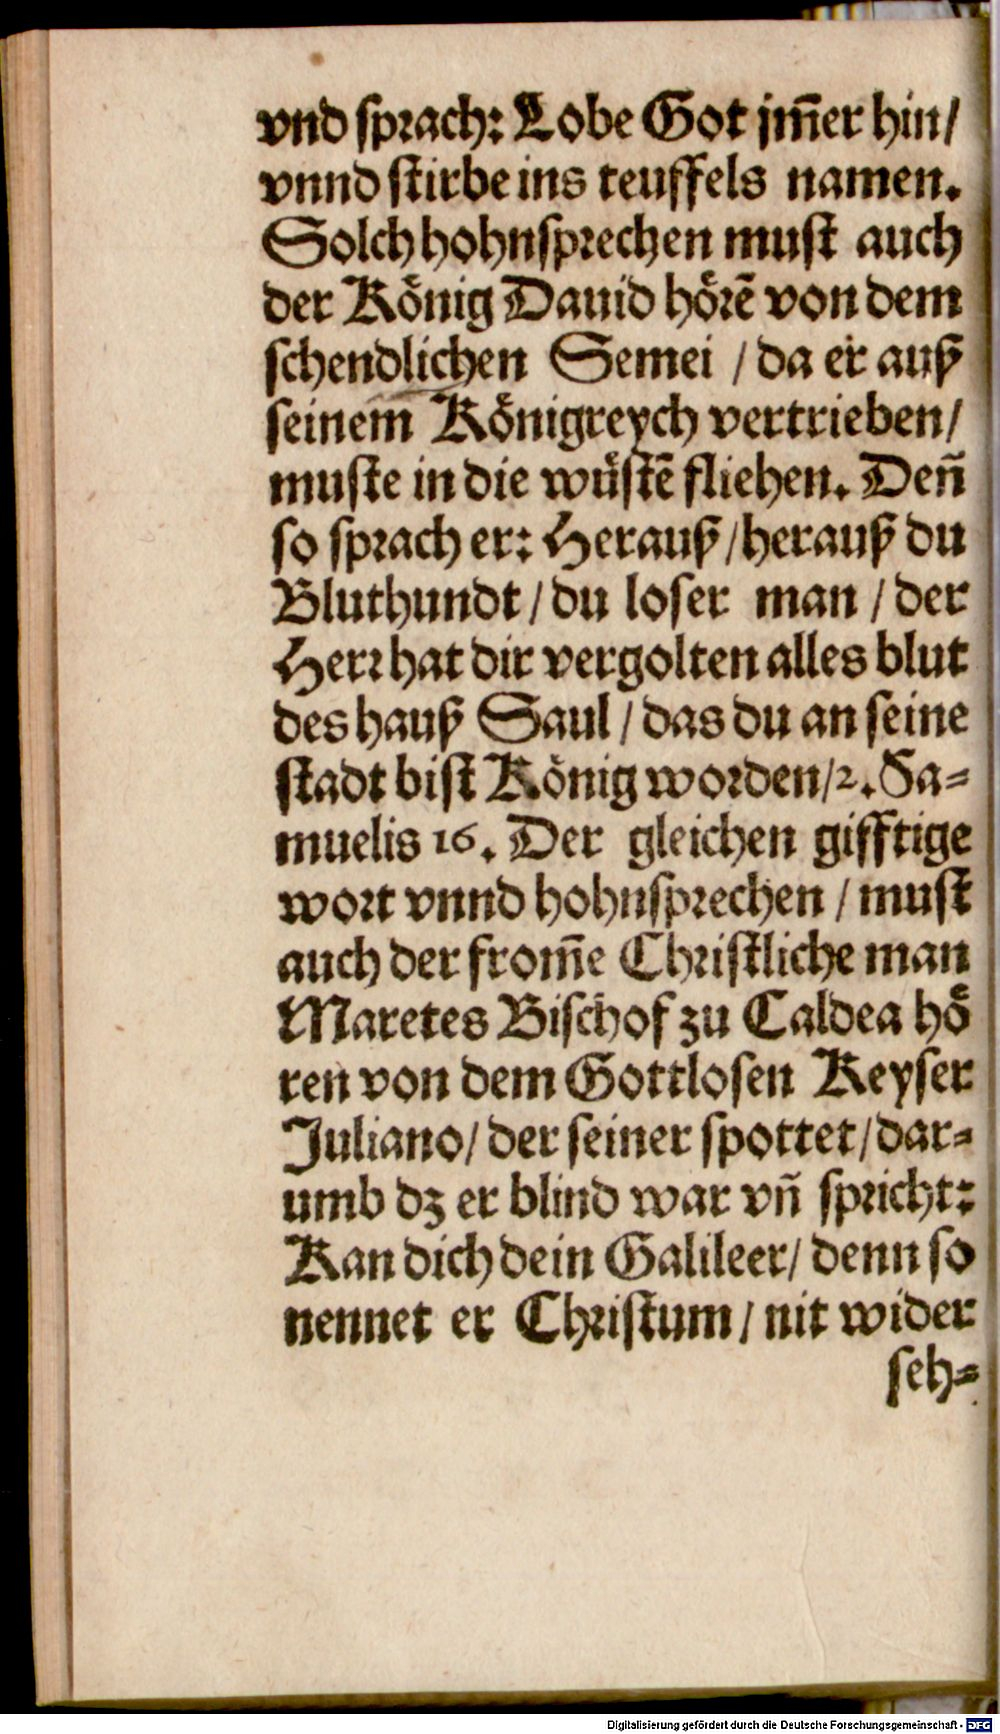 vnd sprach: Lobe Got jm̃er hin/
vnnd stirbe ins teuffels namen.
Solch hohnsprechen must auch
der König Dauid hörē von dem
schendlichen Semei / da er auß
seinem Königreych vertrieben/
muste in die wüstē fliehen. Deñ
so sprach er: Herauß / herauß du
Bluthundt / du loser man / der
Herr hat dir vergolten alles blut
des hauß Saul / das du an seine
stadt bist König worden/2. Sa=
muelis 16. Der gleichen gifftige
wort vnnd hohnsprechen / must
auch der from̃e Christliche man
Maretes Bischof zu Caldea hö
ren von dem Gottlosen Keyser
Juliano/ der seiner spottet/dar=
umb dz er blind war vñ spricht:
Kan dich dein Galileer/ denn so
nennet er Christum / nit wider
seh=
Digitalisierung gefördert durch die Deutsche Forschungsgemeinschaft - DFG